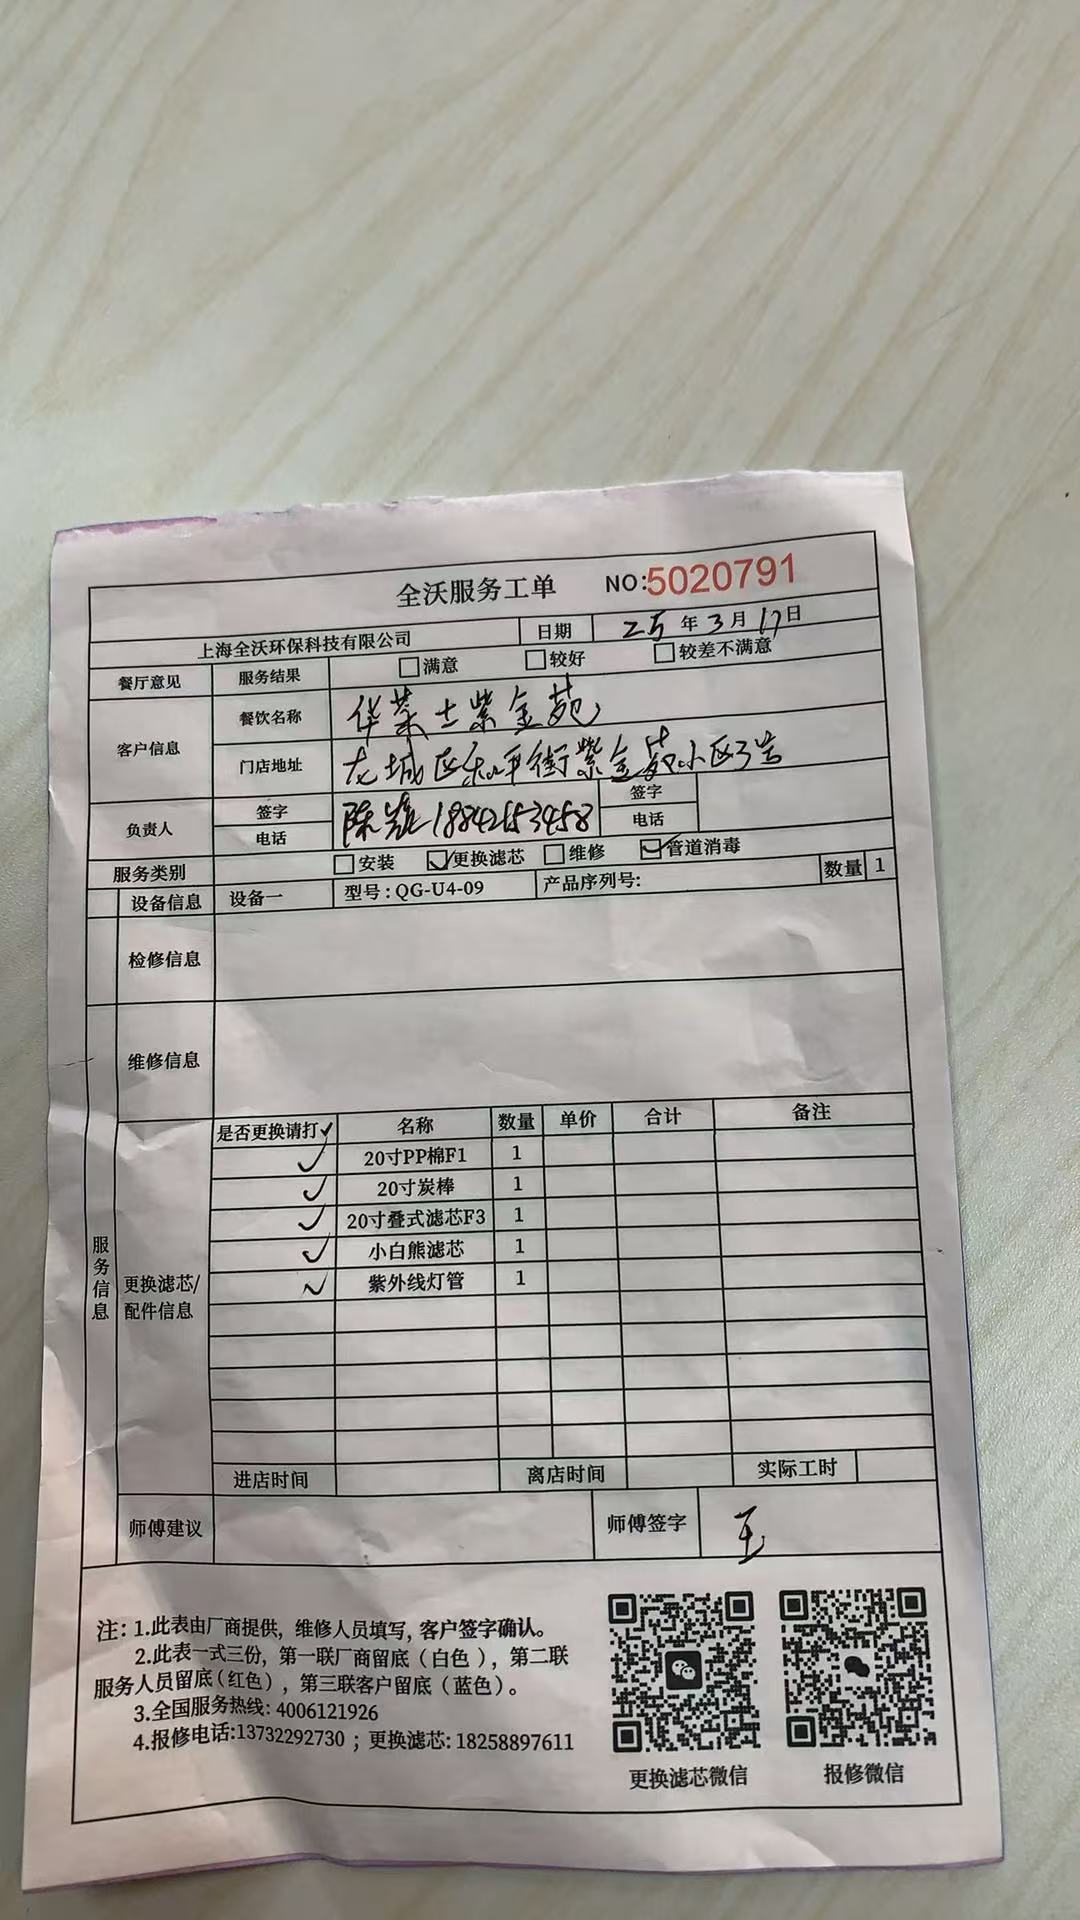 全沃服务工单 NO:5020791
上海全沃环保科技有限公司 日期 25年3月17日
餐厅意见 服务结果 满意 较好 较差不满意
客户信息 餐饮名称 华莱士紫金苑
门店地址 龙城区和平街紫金苑小区3号
负责人 签字 陈 签字
电话 18842153458 电话
服务类别 安装 更换滤芯 维修 管道消毒
设备信息 设备一 型号:QG-U4-09 产品序列号: 数量 1
检修信息
维修信息
服务信息
更换滤芯/配件信息
是否更换请打✓ 名称 数量 单价 合计 备注
✓ 20寸PP棉F1 1
✓ 20寸炭棒 1
✓ 20寸叠式滤芯F3 1
✓ 小白熊滤芯 1
✓ 紫外线灯管 1
进店时间 离店时间 实际工时
师傅建议 师傅签字
注: 1.此表由厂商提供, 维修人员填写, 客户签字确认。
2.此表一式三份, 第一联厂商留底(白色), 第二联
服务人员留底(红色), 第三联客户留底(蓝色)。
3.全国服务热线: 4006121926
4.报修电话:13732292730 ; 更换滤芯: 18258897611
更换滤芯微信 报修微信